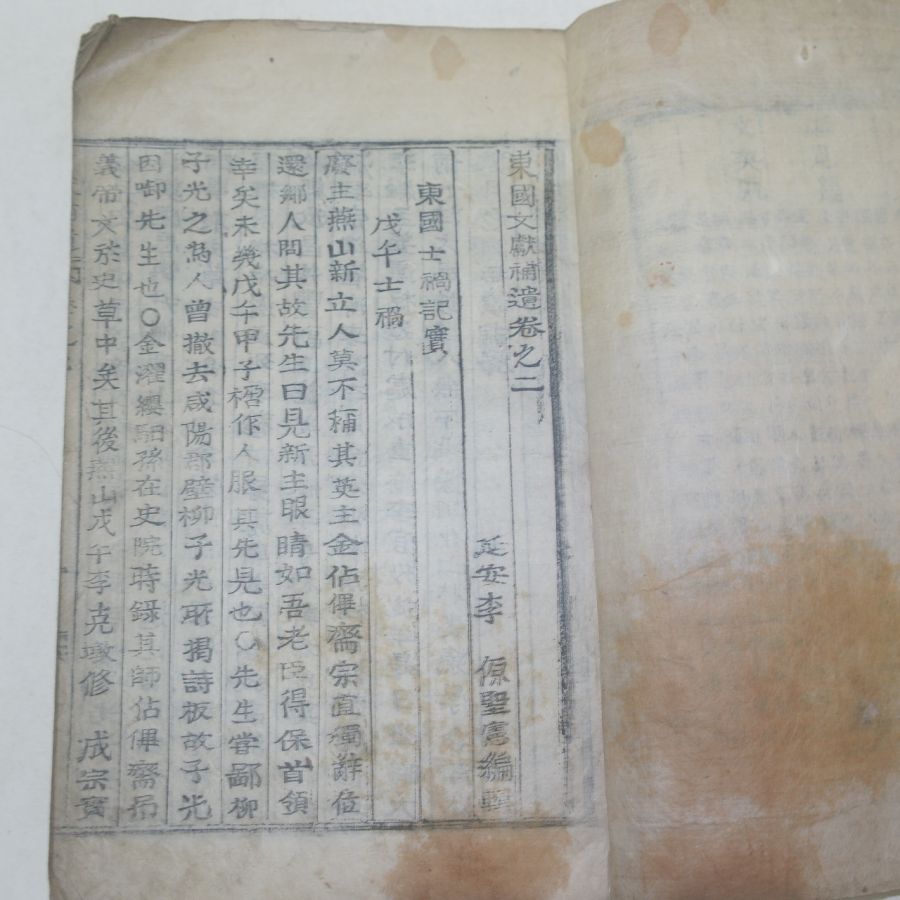 東國文獻補遺卷之二
延安李 源聖憲編輯
東國士禍記實
戊午士禍
廢主燕山新立人莫不稱其英主金佔畢齋宗直獨辭位
還鄉人問其故先生曰見新主眼睛如吾老臣得保首領
幸矣未幾戊午甲子禍作人服其先見也○先生嘗鄙柳
子光之爲人曾撤去咸陽郡壁柳子光所揭詩板故子光
因啣先生也○金濯纓馹孫在史院時錄其師佔畢齋吊
義帝文於史草中矣其後燕山戊午李克墩修 成宗實